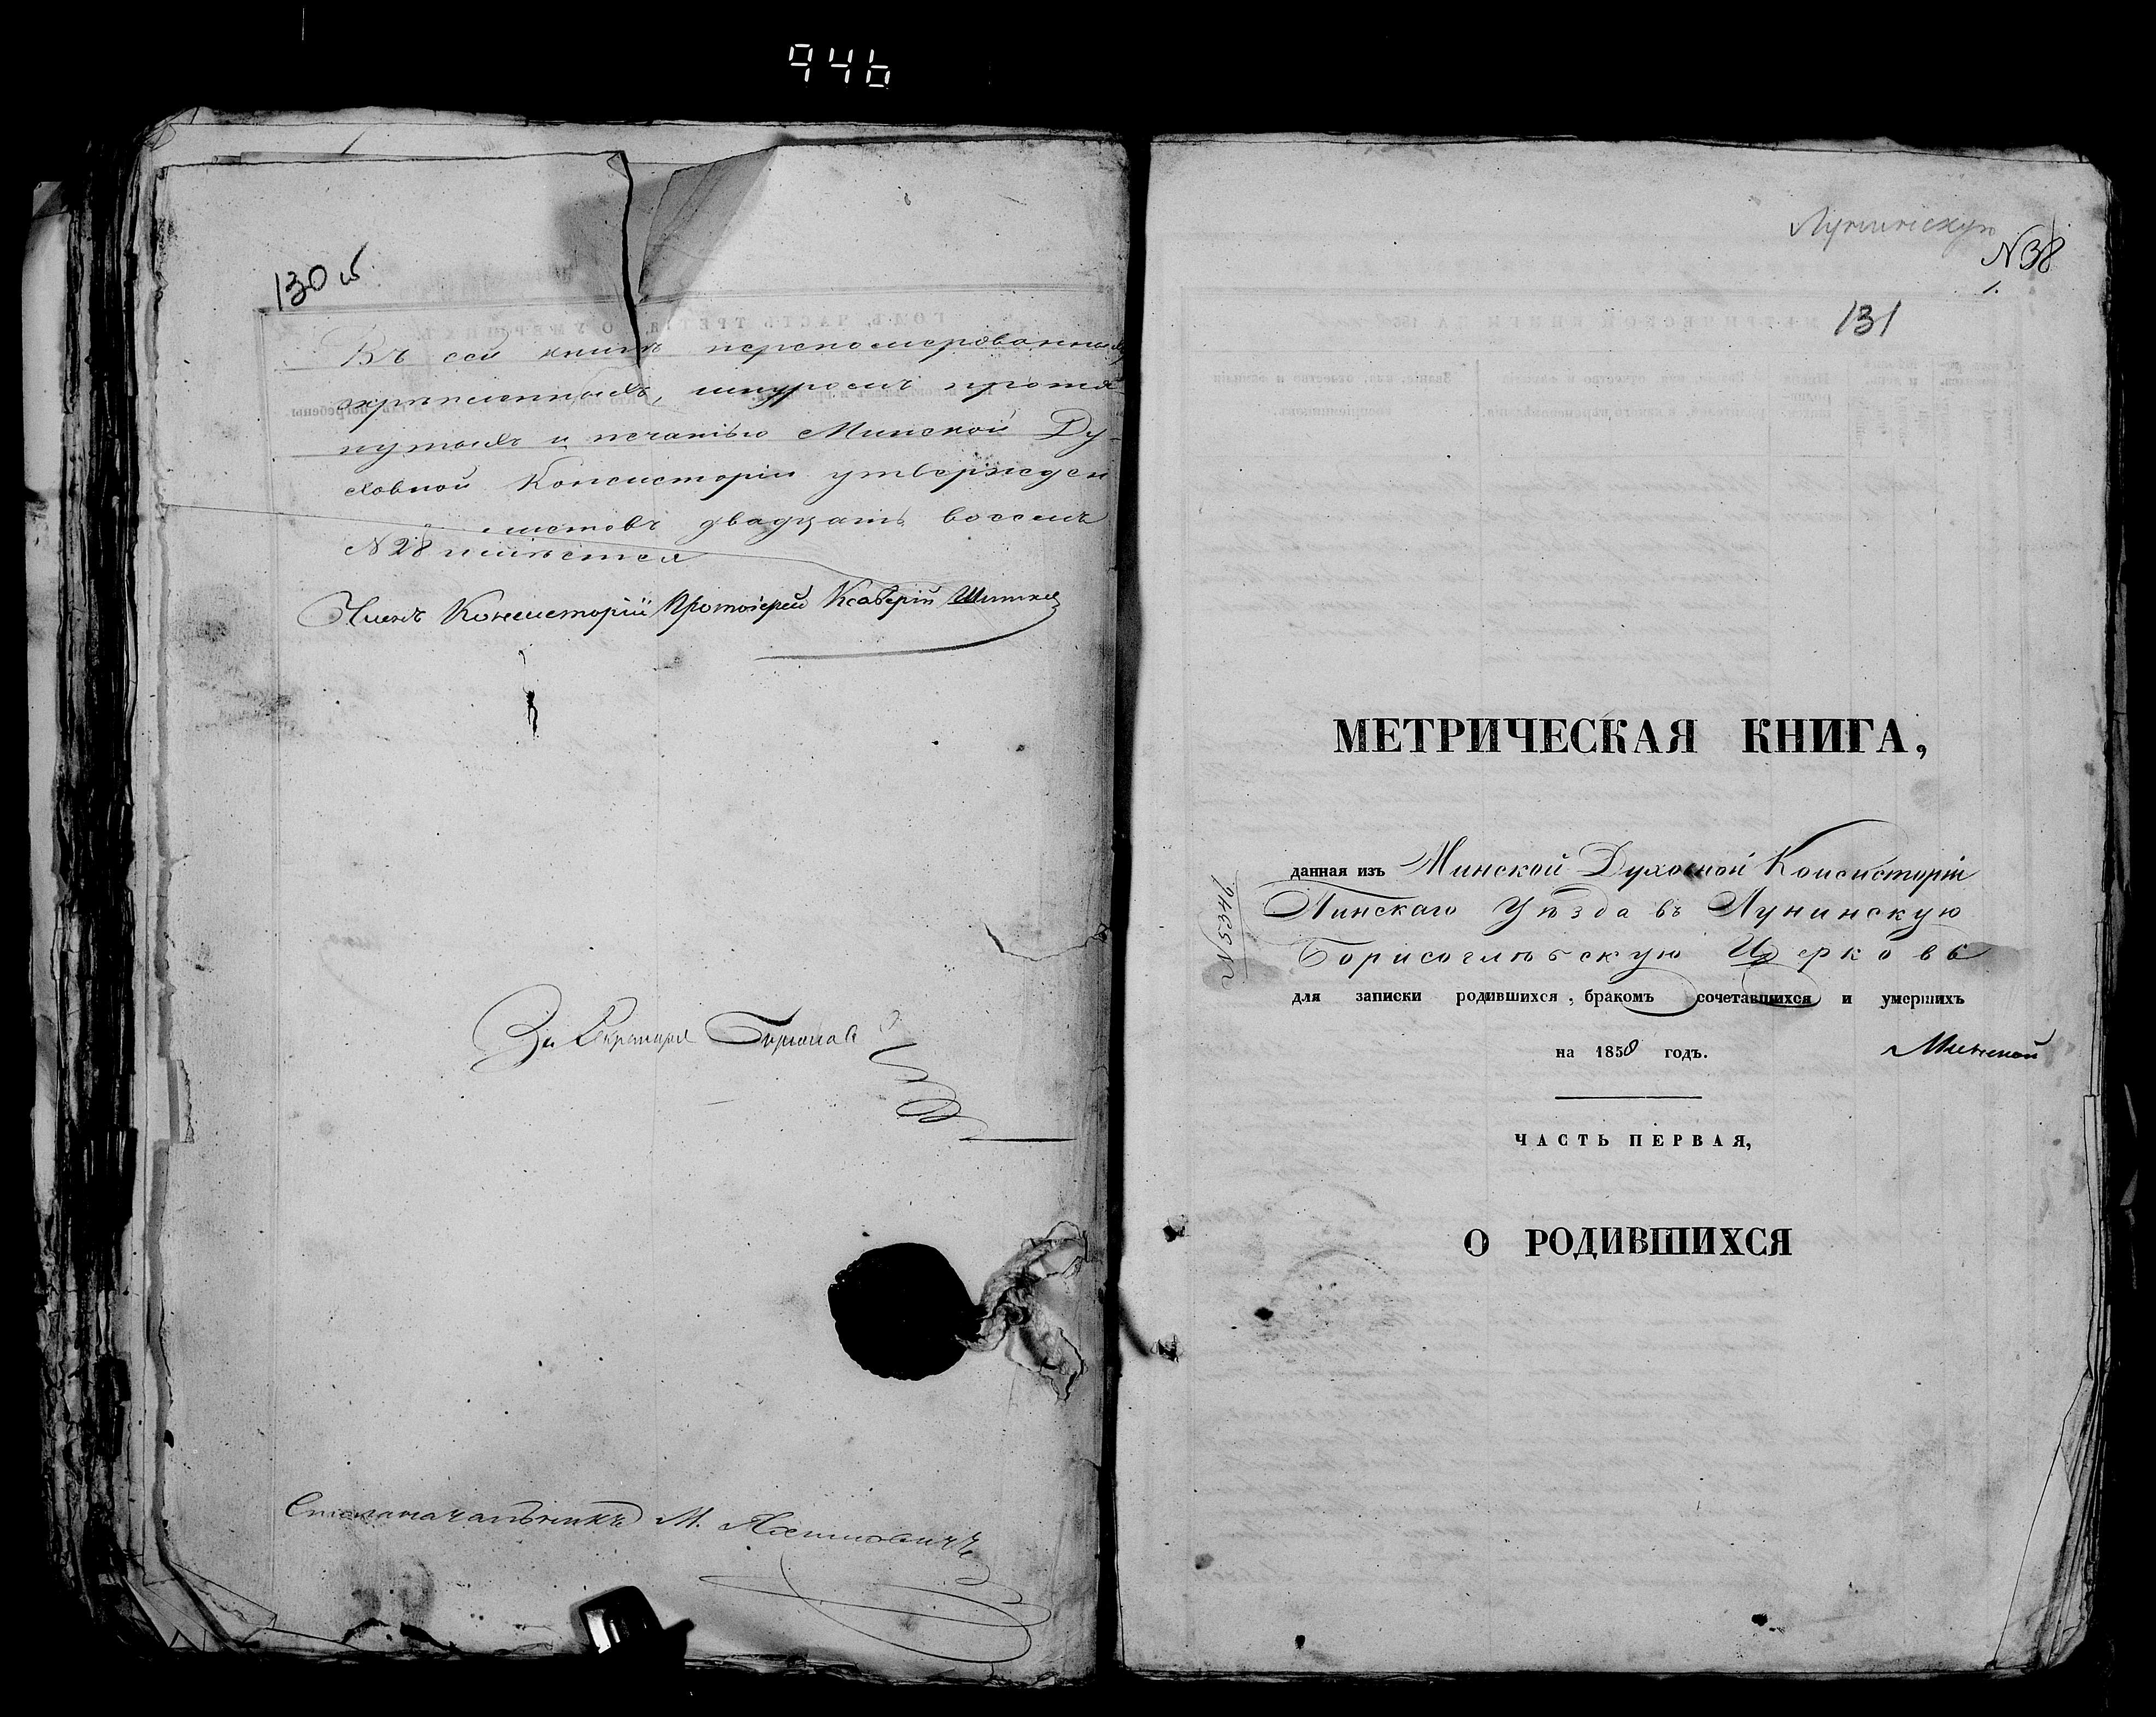 946
130 об
Въ сей книгѣ перенумерованныхъ
скрѣпленныхъ, шнуромъ протя-
нутыхъ и печатью Минской Ду-
ховной Консисторіи утвержден
листовъ двадцать восемь
№ 28 имѣется
Членъ Консисторіи Протоіерей Ксаверій
За Секретаря
Столоначальникъ М.
Лунинскую
№ 38
1.
131
МЕТРИЧЕСКАЯ КНИГА,
№ 5346.
данная изъ Минской Духовной Консисторіи
Пинскаго Уѣзда въ Лунинскую
Борисоглѣбскую Церковь
для записки родившихся, бракомъ сочетавшихся и умершихъ
на 1858 годъ.
Минской
ЧАСТЬ ПЕРВАЯ,
О РОДИВШИХСЯ